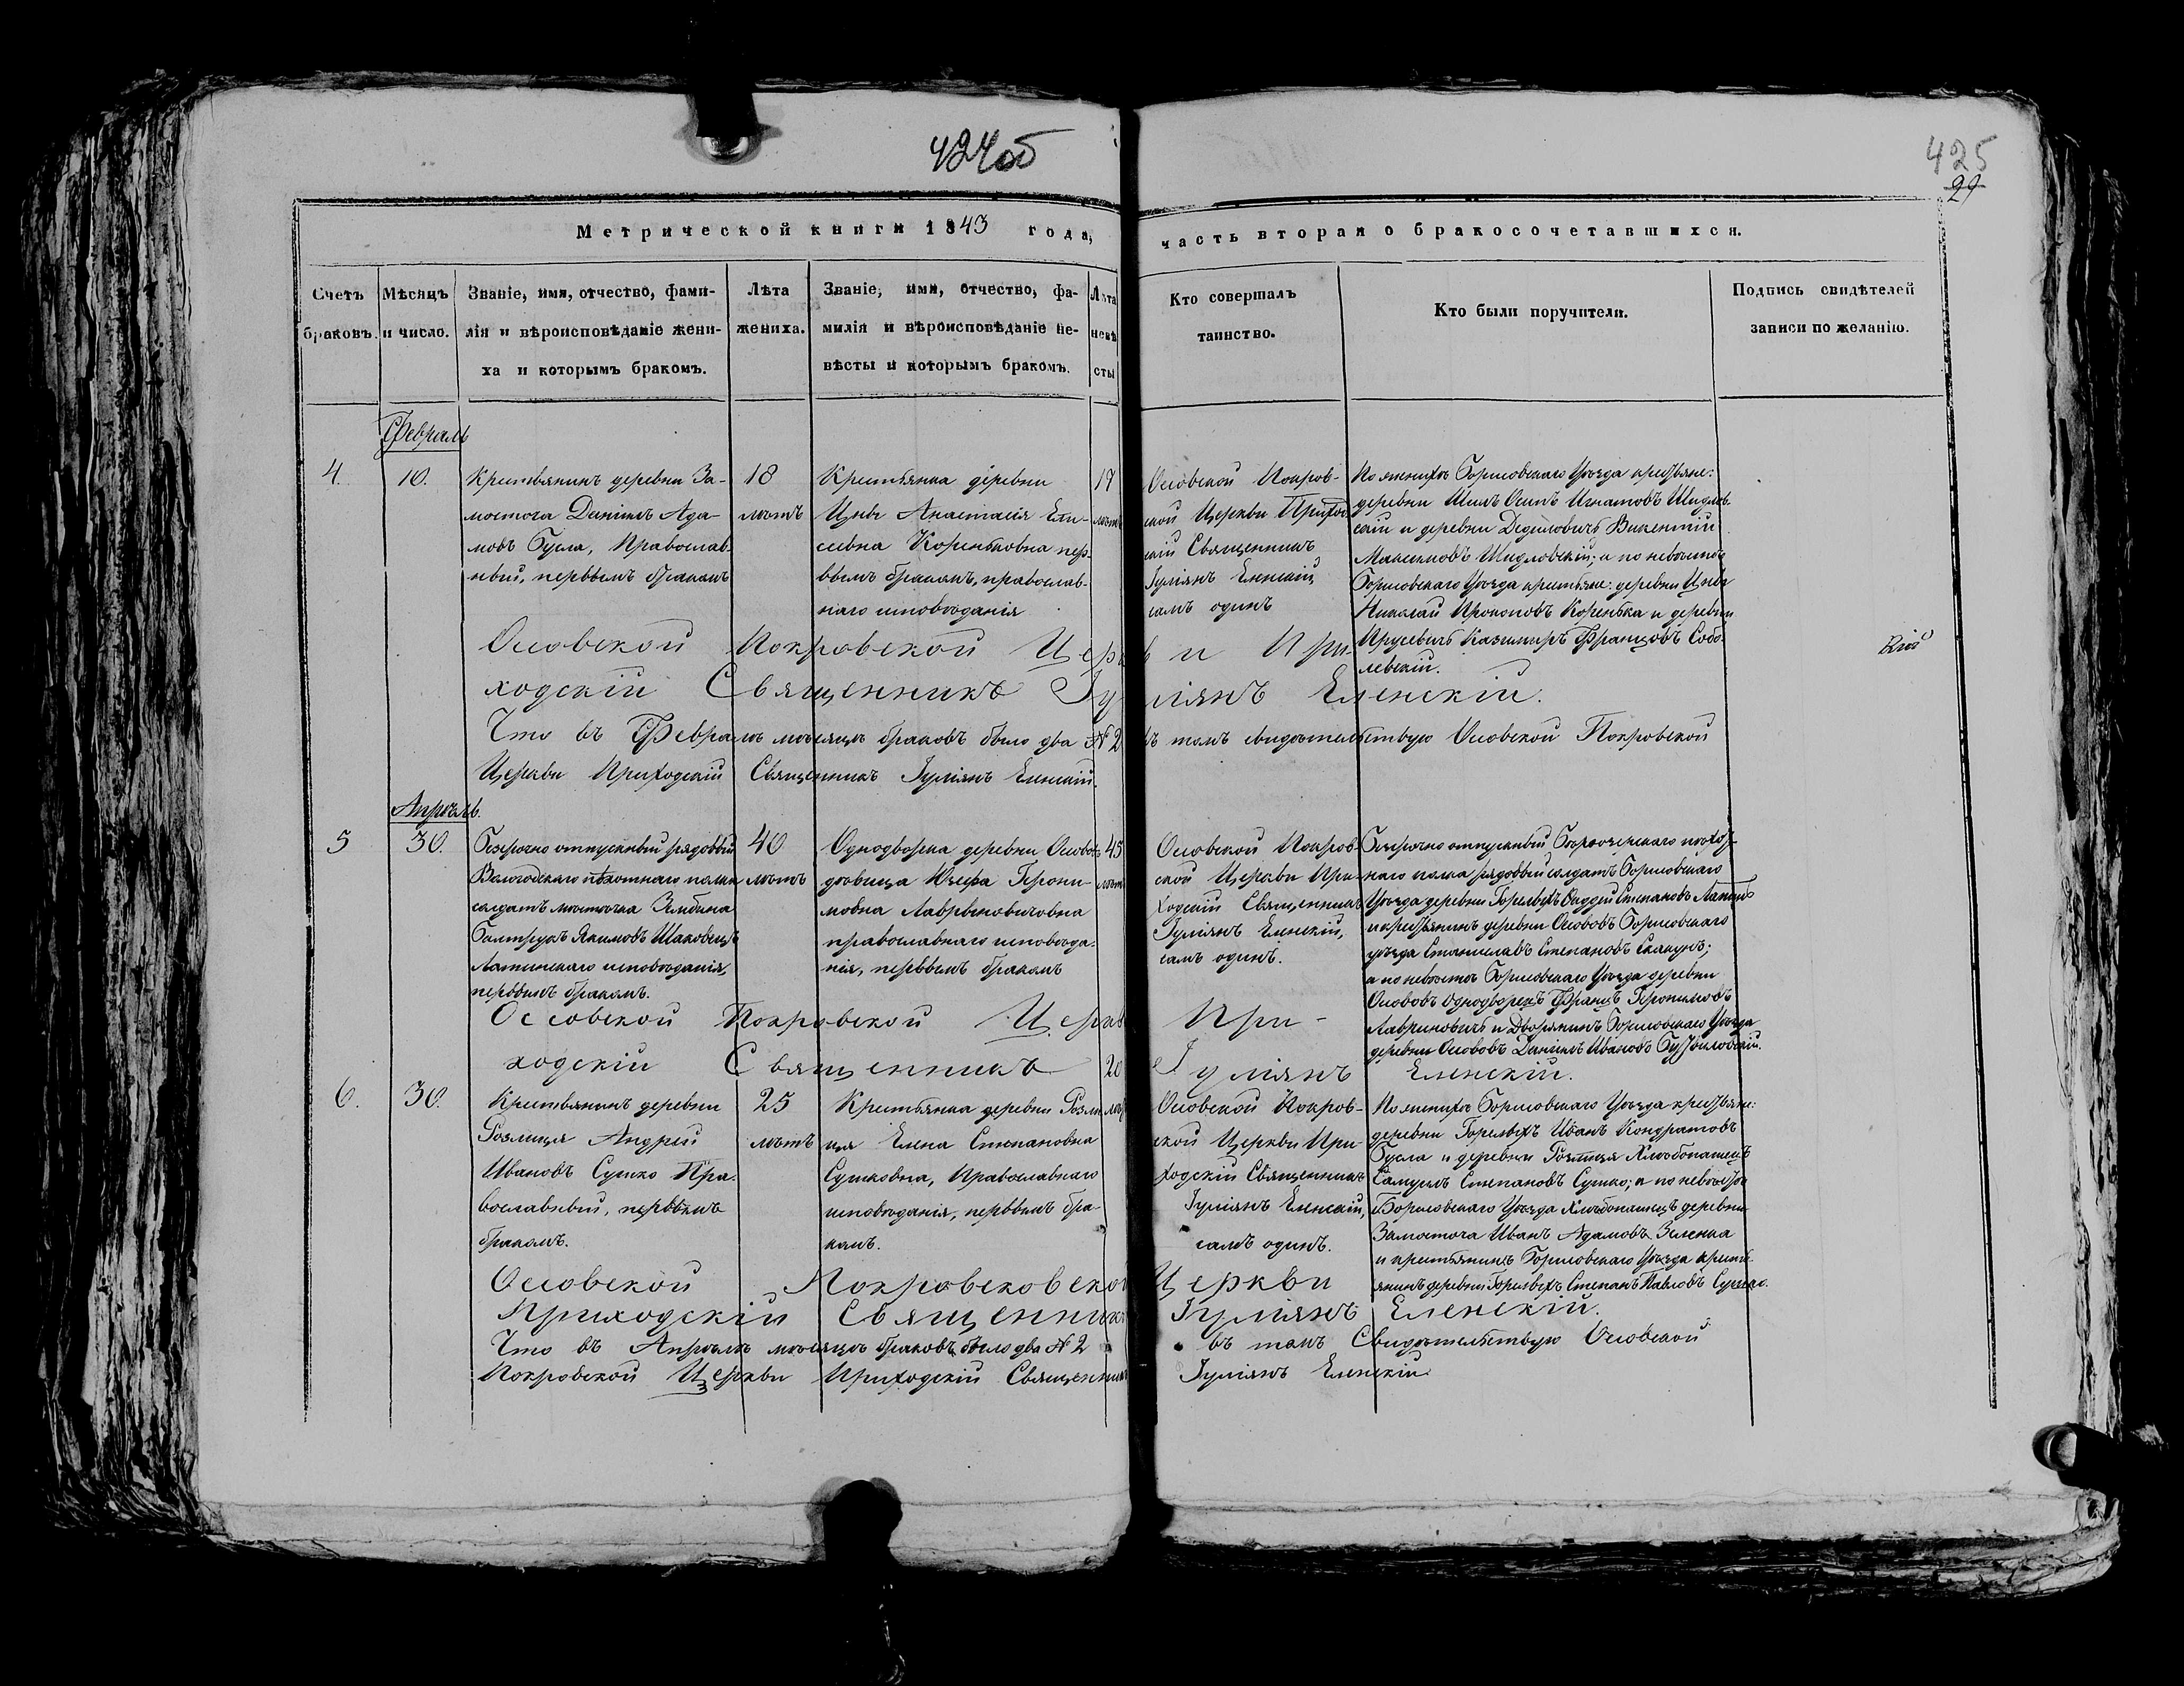 424об
425
29
Метрической книги 1843 года,
часть вторая о бракосочетавшихся.
Счетъ
браковъ.
Мѣсяцъ
и число.
Званіе, имя, отчество, фами-
лія и вѣроисповѣданіе жени-
ха и которымъ бракомъ.
Лѣта
жениха.
Званіе, имя, отчество, фа-
милія и вѣроисповѣданіе не-
вѣсты и которымъ бракомъ.
Лѣта
невѣ
сты
Кто совершалъ
таинство.
Кто были поручители.
Подпись свидѣтелей
записи по желанію.
Февраль
4.
10.
Крестьянинъ деревни За-
мосточа Даніилъ Ада-
мовъ Бусла, Православ-
ный, первымъ бракомъ
18
лѣтъ
Крестьянка деревни
Цны Анастасія Ели-
сеевна Коренковна пер-
вымъ бракомъ, православ-
наго исповѣданія
17
лѣтъ
Осовской Покров-
ской Церкви Приход
скій Священникъ
Іуліянъ Еленскій
самъ одинъ
По женихѣ Борисовскаго Уѣзда крестьяне:
деревни Осипъ Игнатовъ Шидлов-
скій и деревни Дедиловичъ Викентій
Максимовъ Шидловскій; а по невѣстѣ
Борисовскаго Уѣзда крестьяне: деревни Цны
Николай Прокоповъ Коренька и деревни
Прусевичъ Казимиръ Францовъ Собо-
левскій.
Осовской Покровской Церкви При-
ходскій Священникъ Іуліянъ Еленскій.
кій
Что въ Февралѣ мѣсяцѣ браковъ было два № 2 въ томъ свидѣтельствую Осовской Покровской
Церкви Приходскій Священникъ Іуліянъ Еленскій.
Апрѣль.
5
30.
Безрочно отпускный рядовый
Вологодскаго пѣхотнаго полка
солдатъ мѣстечка Зембина
Балтрукъ Якимовъ Шаковецъ
Латинскаго исповѣданія,
первымъ бракомъ.
40
лѣтъ
Однодворка деревни Осовъ
дѣвица Юзефа Герони-
мовна Лавриновичовна
православнаго исповѣда-
нія, первымъ бракомъ
45
лѣтъ
Осовской Покров-
ской Церкви При-
ходскій Священникъ
Іуліянъ Еленскій,
самъ одинъ.
Безрочно отпускный пѣхот-
наго полка рядовый солдатъ Борисовскаго
Уѣзда деревни Степановъ
и крестьянинъ деревни Осововъ Борисовскаго
уѣзда Станиславъ Степановъ Скакунъ;
а по невѣстѣ Борисовскаго Уѣзда деревни
Осововъ однодворецъ Францъ Геронимовъ
Лавриновичъ и Дворянинъ Борисовскаго Уѣзда
деревни Осововъ Даніилъ Ивановъ
Осовской Покровской Церкви При-
ходскій Священникъ Іуліянъ Еленскій.
6.
30.
Крестьянинъ деревни
Розлиця Андрей
Ивановъ Сушко Пра-
вославный, первымъ
бракомъ.
25
лѣтъ
Крестьянка деревни Розли-
ця Елена Степановна
Сушковна, Православнаго
исповѣданія, первымъ бра-
комъ.
20
лѣт
Осовской Покров-
ской Церкви При-
ходскій Священникъ
Іуліянъ Еленскій,
самъ одинъ.
По женихѣ Борисовскаго Уѣзда крестьяне:
деревни Иванъ Кондратовъ
Бусла и деревни Хлѣбопашецъ
Самуилъ Степановъ Сушко; а по невѣстѣ
Борисовскаго Уѣзда Хлѣбопашецъ деревни
Замосточа Иванъ Адамовъ Зеленка
и крестьянинъ Борисовскаго Уѣзда кресть-
янинъ деревни Степанъ Павловъ
Осовской Покровсковской Церкви
Приходскій Священникъ Іуліянъ Еленскій.
Что въ Апрѣлѣ мѣсяцѣ браковъ было два № 2 въ томъ Свидѣтельствую Осовской
Покровской Церкви Приходскій Священникъ Іуліянъ Еленскій